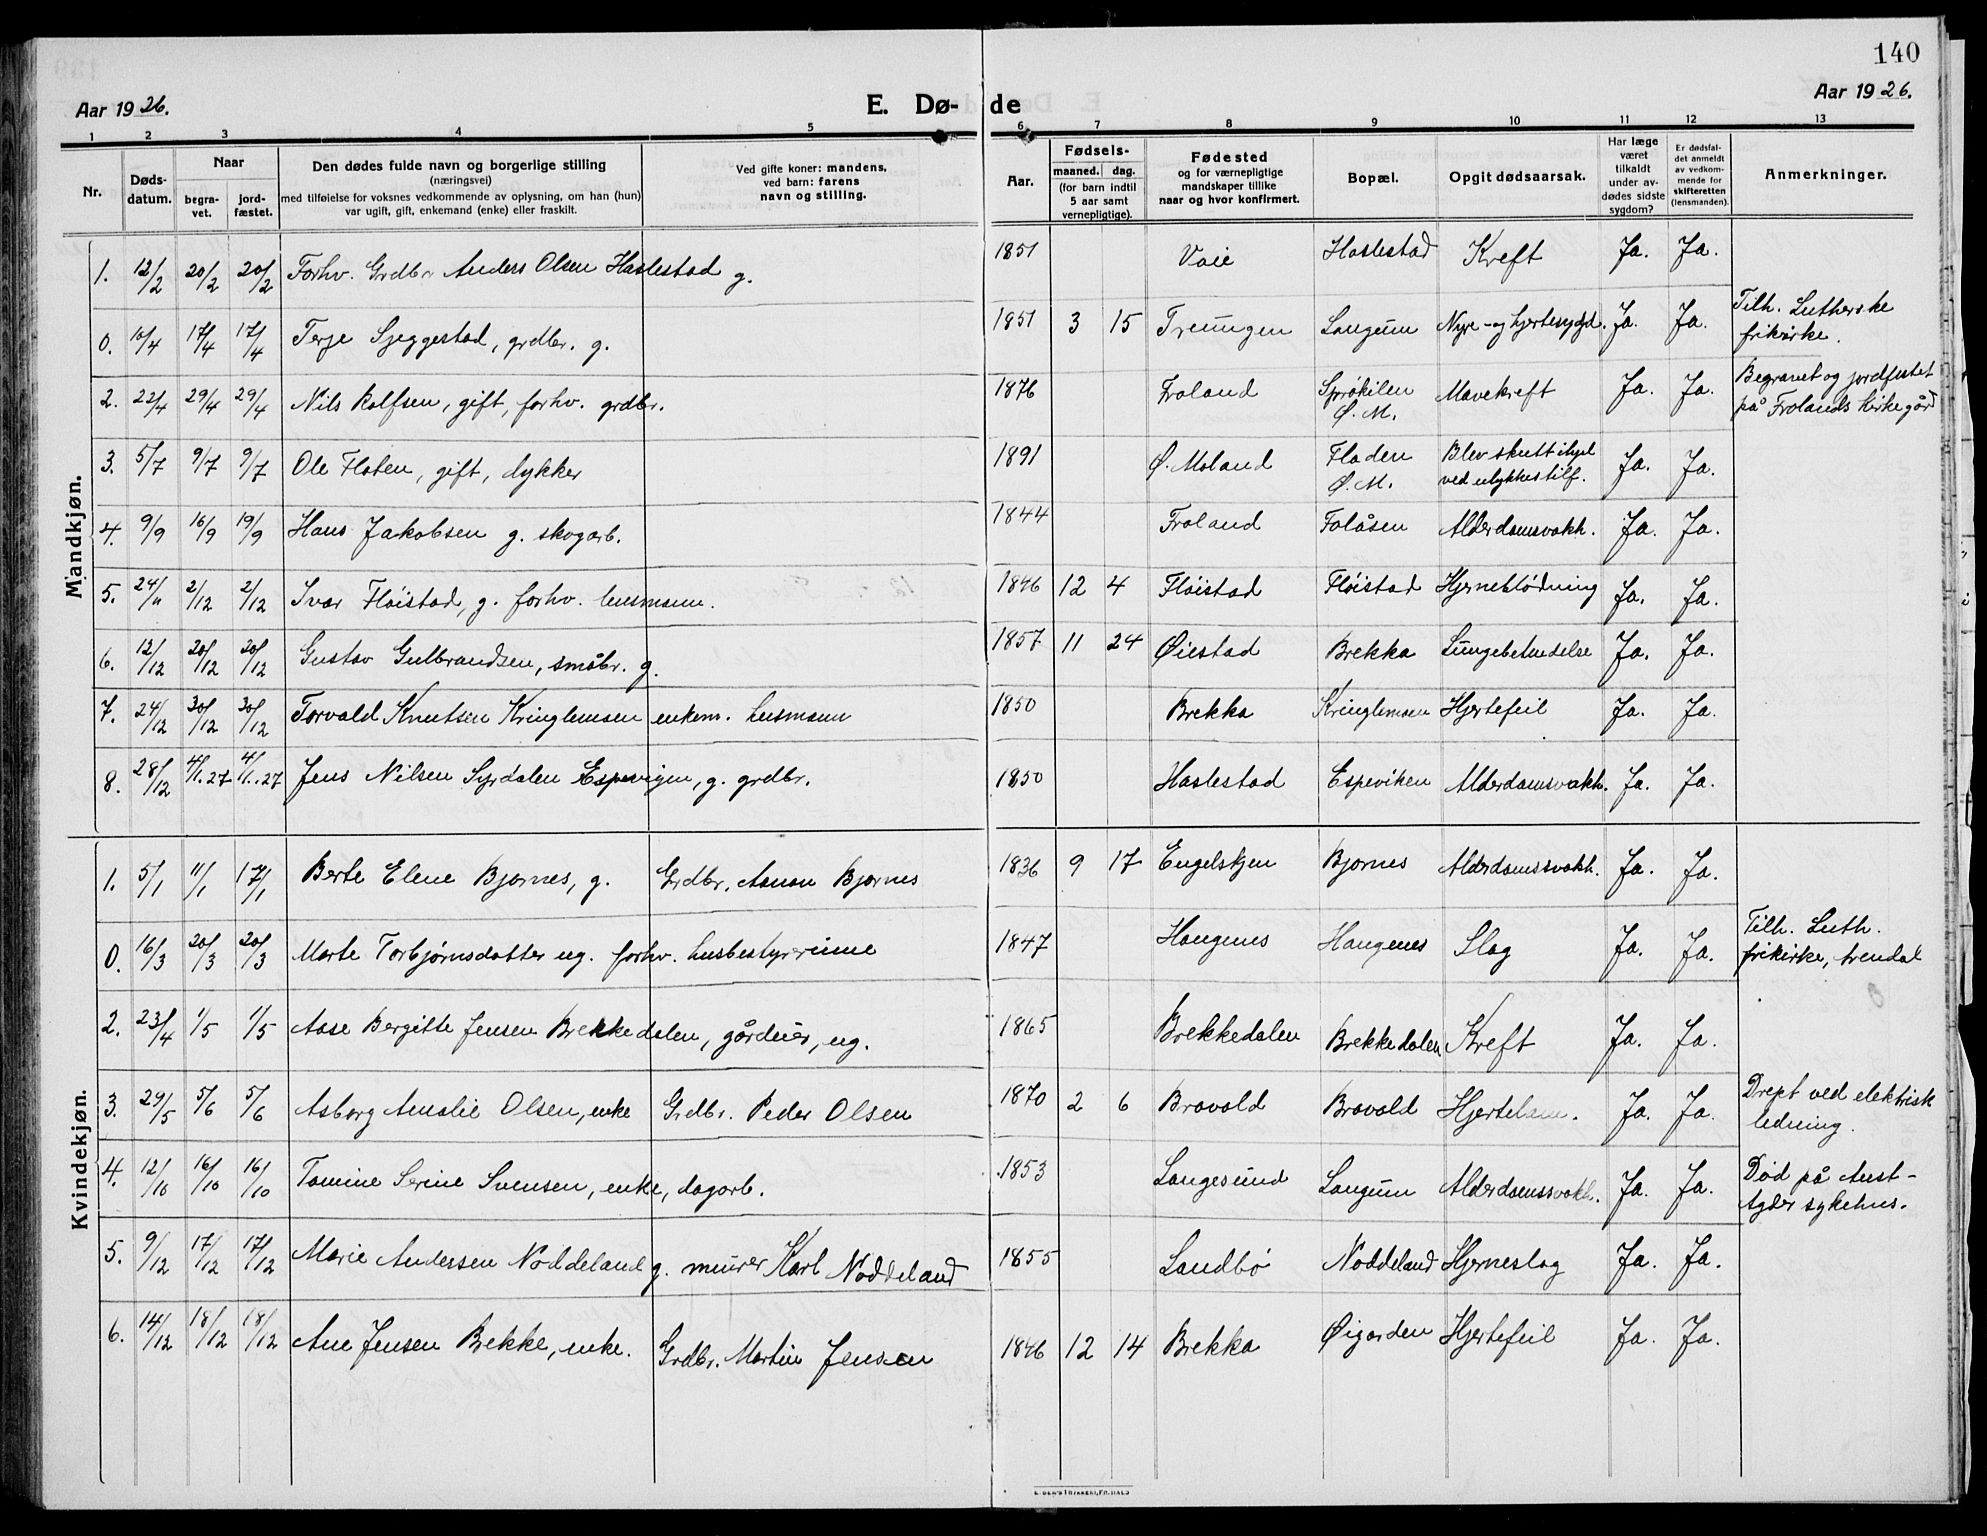 140
Aar 1926.
E. Dø-de
Aar 1926.
1 2 3 4 5 6 7 8 9 10 11 12 13
Nr.
Døds-datum.
Naar
begra-vet.
jord-fæstet.
Den dødes fulde navn og borgerlige stilling
(næringsvei)
med tilføielse for voksnes vedkommende av oplysning, om han (hun)
var ugift, gift, enkemand (enke) eller fraskilt.
Ved gifte koner: mandens,
ved barn: farens
navn og stilling.
Aar.
Fødsels-
maaned. dag.
(for barn indtil
5 aar samt
vernepligtige).
Fødested
og for værnepligtige
mandskaper tillike
naar og hvor konfirmert.
Bopæl.
Opgit dødsaarsak.
Har læge
været
tilkaldt
under av-
dødes sidste
sygdom?
Er dødsfal-
det anmeldt
av vedkom-
mende for
skifteretten
(lensmanden).
Anmerkninger.
Mandkjøn.
1. 12/2 20/2 20/2 Forhv. Grdbr Anders Olsen Haslestad g. 1851 Vaie Haslestad Kreft Ja. Ja.
0. 10/4 17/4 17/4 Terje Sjeggestad, grdbr. g. 1851 3 15 Treungen Langum Nyre- og hjertesygd. Ja. Ja. Tilh. Lutherske
frikirke.
2. 22/4 29/4 29/4 Nils Rolfsen, gift, forhv. grdbr. 1876 Froland Sprøkilen
Ø. M. Mavekreft Ja. Ja. Begravet og jordfestet
på Frolands kirkegård
3. 5/7 9/7 9/7 Ole Flaten, gift, dykker 1891 Ø. Moland Fladen
Ø. M. Blev skutt ihjel
ved ulykkestilf. Ja. Ja.
4. 9/9 16/9 19/9 Hans Jakobsen g. skogarb. 1844 Froland Folåsen Alderdomsvakh. Ja. Ja.
5. 24/11 2/12 2/12 Ivar Fløistad, g. forhv. husmann. 1846 12 4 Fløistad Fløistad Hjerneblødning Ja. Ja.
6. 12/12 20/12 20/12 Gustav Gulbrandsen, småbr. g. 1857 11 24 Øiestad Brekka Lungebetendelse Ja. Ja.
7. 24/12 30/12 30/12 Torvald Knutsen Kringlemoen enkem. husmann 1850 Brekka Kringlemoen Hjertefeil Ja. Ja.
8. 28/12 4/1.27 4/1.27 Jens Nilsen Syrdalen Espevigen, g. grdbr. 1850 Haslestad Espeviken Alderdomsvakh. Ja. Ja.
Kvindekjøn.
1. 5/1 11/1 17/1 Berte Elene Bjornes, g. Grdbr. Aanon Bjornes 1836 9 17 Engelskjen Bjornes Alderdomssvakh. Ja. Ja.
0. 16/3 20/3 20/3 Marte Torbjørnsdatter ug. forhv. husbestyrerinne 1847 Haugenes Haugenes Slag Ja. Ja. Tilh. Luth.
frikirke, Arendal
2. 23/4 1/5 1/5 Aase Bergitte Jensen Brekkedalen, gårdeier, ug. 1865 Brekkedalen Brekkedalen Kreft Ja. Ja.
3. 29/5 5/6 5/6 Asborg Amalie Olsen, enke Grdbr. Peder Olsen 1870 2 6 Bravold Bravold Hjertelam. Ja. Ja. Drept ved elektrisk
ledning.
4. 12/10 16/10 16/10 Tomine Serine Svensen, enke, dagarb. 1853 Langesund Langum Alderdomssvakh. Ja. Ja. Død på Aust-
Agder sykehus.
5. 9/12 17/12 17/12 Marie Andersen Noddeland g. murer Karl Noddeland 1855 Landbø Noddeland Hjerneslag Ja. Ja.
6. 14/12 18/12 18/12 Ane Jensen Bekke, enke. Grdbr. Martin Jensen 1846 12 14 Brekka Øigarden Hjertefeil Ja. Ja.